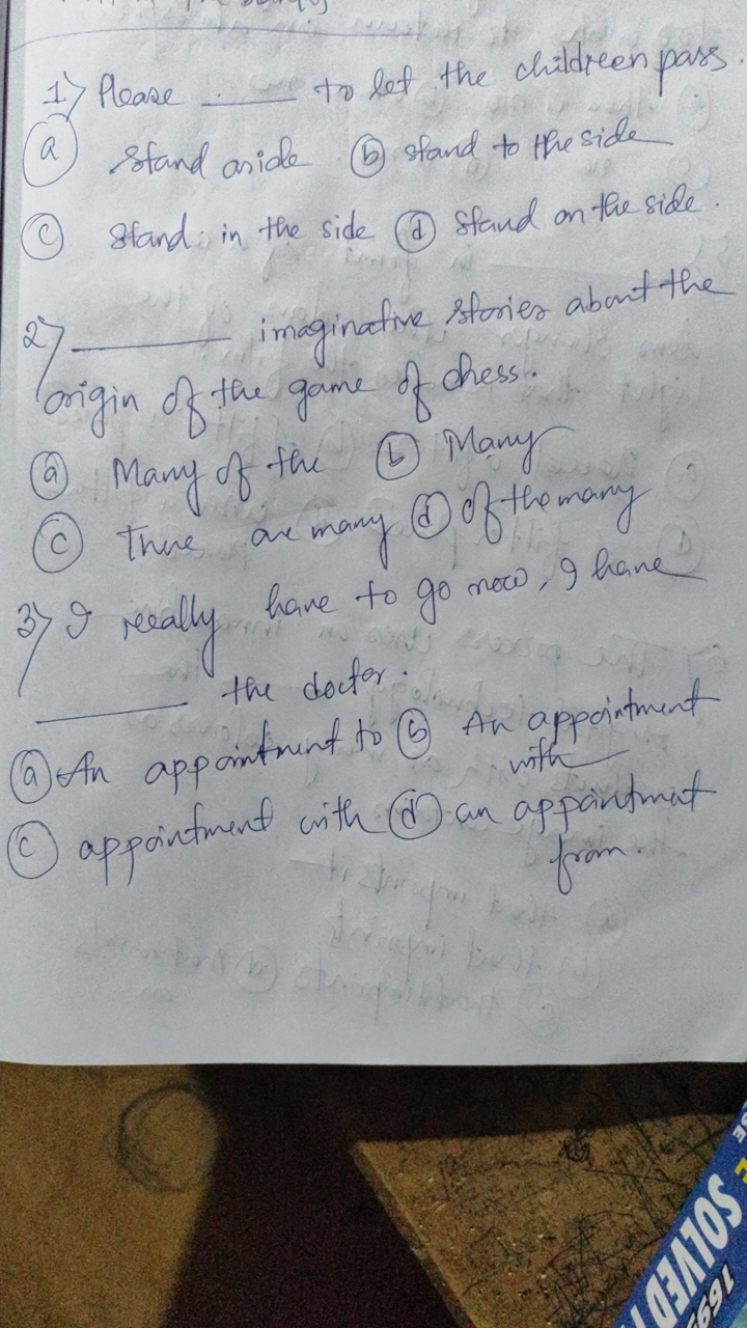 1) Please ______ to let the childreen pass.
(a) stand aside (b) stand to the side
(c) stand in the side (d) stand on the side.
2) ______ imaginative stories about the
origin of the game of chess.
(a) Many of the (b) Many
(c) There are many (d) Of the many
3) I really have to go now, I have
______ the doctor.
(a) An appointment to (b) An appointment
with
(c) appointment with (d) an appointmet
from.
SOLVED